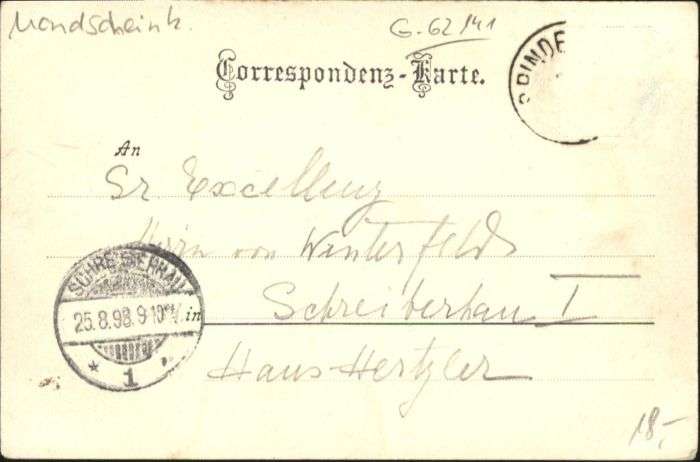 Mondscheink.
G-62/41
Correspondenz-Karte.
SPINDE
An
Sr Excellenz
Herrn von Winterfeld
Schreiberhau I
in
Haus Hertzler
SCHREIBERHAU
25.8.98. 9-10V
* 1 *
18,-